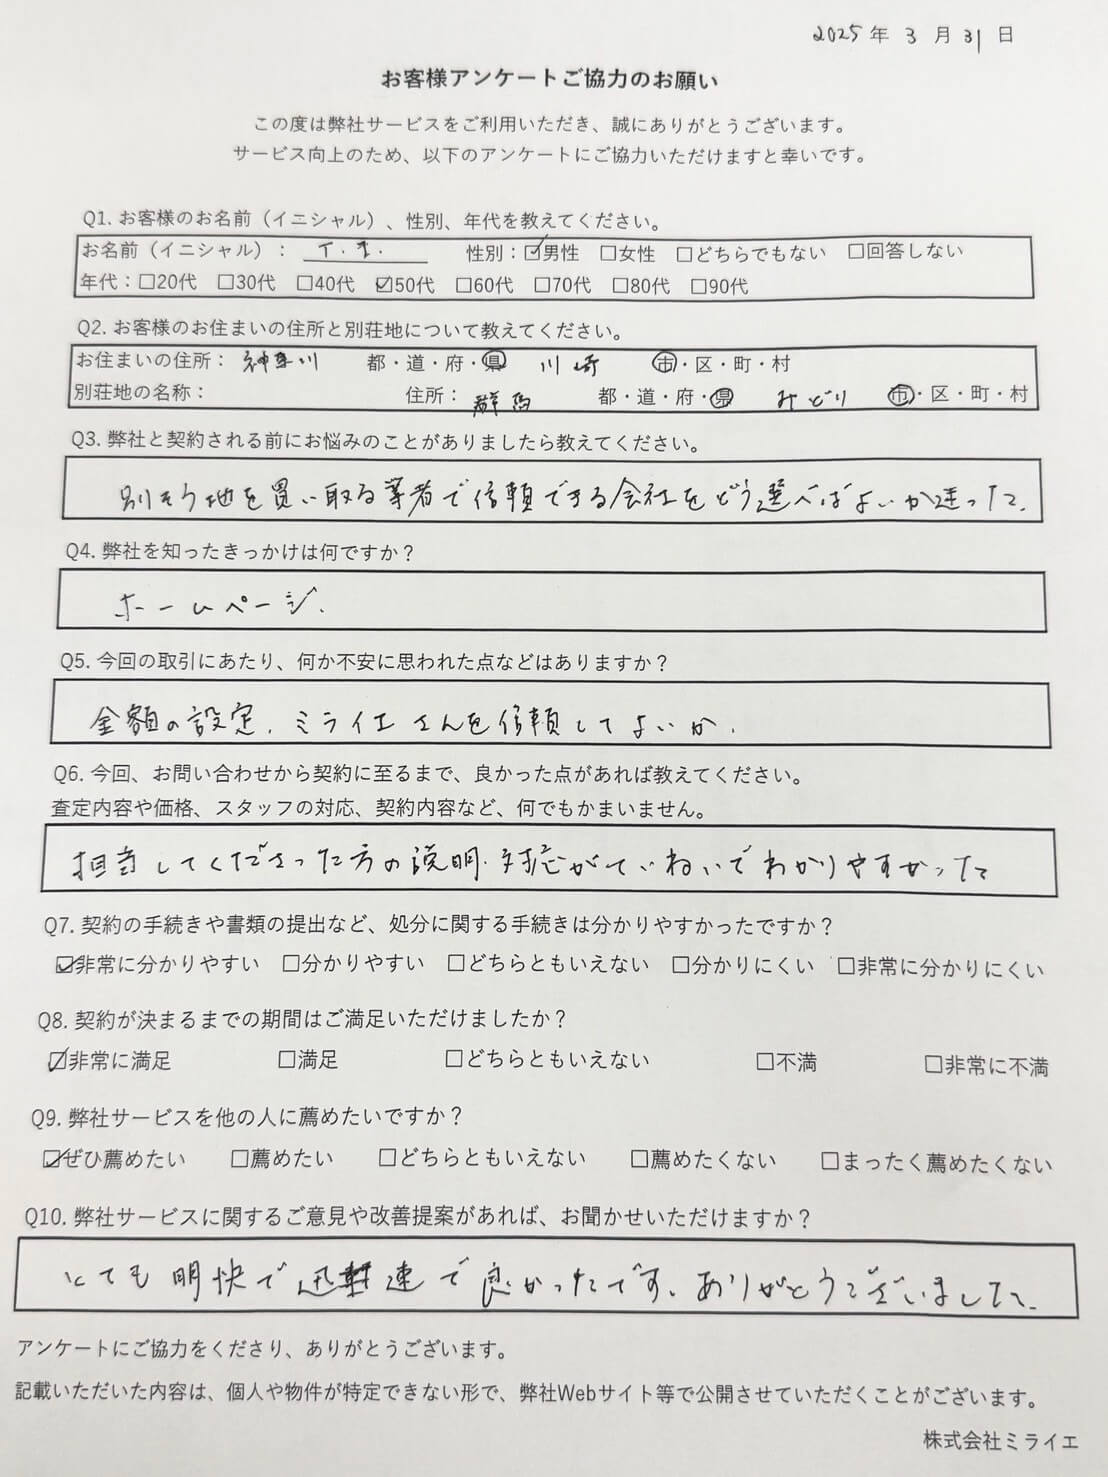 2025年 3月 31日
お客様アンケートご協力のお願い
この度は弊社サービスをご利用いただき、誠にありがとうございます。
サービス向上のため、以下のアンケートにご協力いただけますと幸いです。
Q1. お客様のお名前（イニシャル）、性別、年代を教えてください。
お名前（イニシャル）： T. I. 性別：☑男性 □女性 □どちらでもない □回答しない
年代：□20代 □30代 □40代 ☑50代 □60代 □70代 □80代 □90代
Q2. お客様のお住まいの住所と別荘地について教えてください。
お住まいの住所： 神奈川 都・道・府・県 川崎 市・区・町・村
別荘地の名称： 住所： 群馬 都・道・府・県 みどり 市・区・町・村
Q3. 弊社と契約される前にお悩みのことがありましたら教えてください。
別そう地を買い取る業者で信頼できる会社をどう選べばよいか迷った.
Q4. 弊社を知ったきっかけは何ですか？
ホームページ.
Q5. 今回の取引にあたり、何か不安に思われた点などはありますか？
金額の設定. ミライエさんを信頼してよいか.
Q6. 今回、お問い合わせから契約に至るまで、良かった点があれば教えてください。
査定内容や価格、スタッフの対応、契約内容など、何でもかまいません。
担当してくださった方の説明・対応がていねいでわかりやすかった
Q7. 契約の手続きや書類の提出など、処分に関する手続きは分かりやすかったですか？
☑非常に分かりやすい □分かりやすい □どちらともいえない □分かりにくい □非常に分かりにくい
Q8. 契約が決まるまでの期間はご満足いただけましたか？
☑非常に満足 □満足 □どちらともいえない □不満 □非常に不満
Q9. 弊社サービスを他の人に薦めたいですか？
☑ぜひ薦めたい □薦めたい □どちらともいえない □薦めたくない □まったく薦めたくない
Q10. 弊社サービスに関するご意見や改善提案があれば、お聞かせいただけますか？
とても明快で迅速で良かったです. ありがとうございました.
アンケートにご協力をくださり、ありがとうございます。
記載いただいた内容は、個人や物件が特定できない形で、弊社Webサイト等で公開させていただくことがございます。
株式会社ミライエ